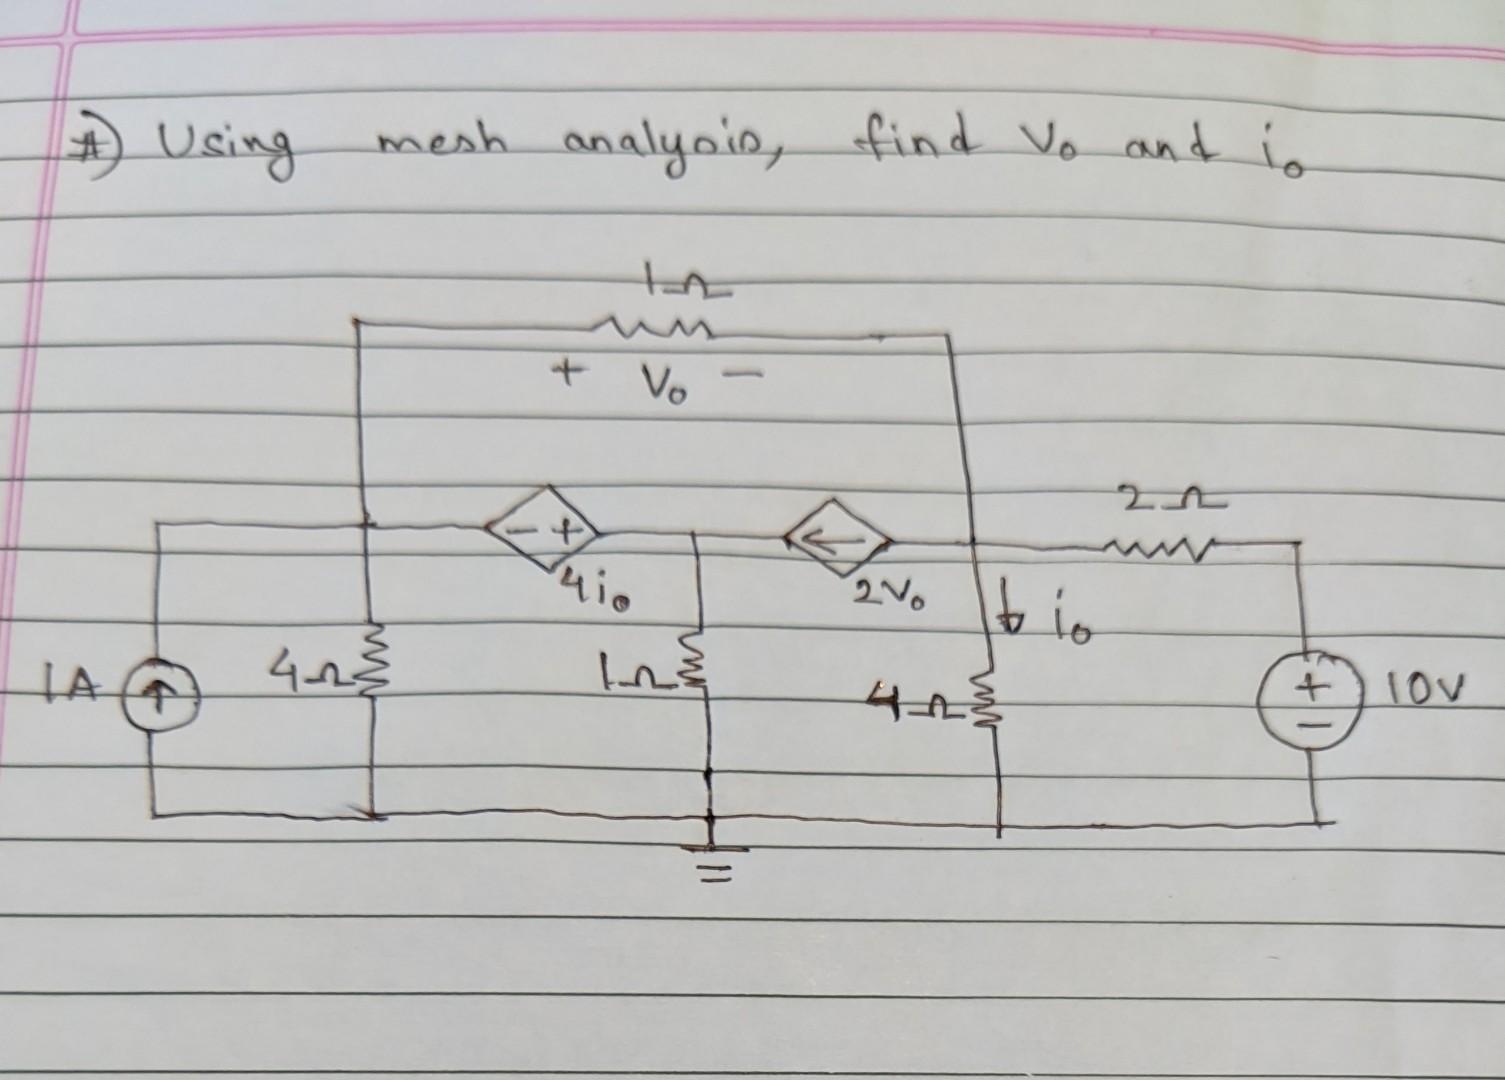 #) Using mesh analysis, find Vo and io
1Ω
+ Vo −
2Ω
− +
4io
2Vo
io
1A
4Ω
1Ω
4Ω
+
−
10V